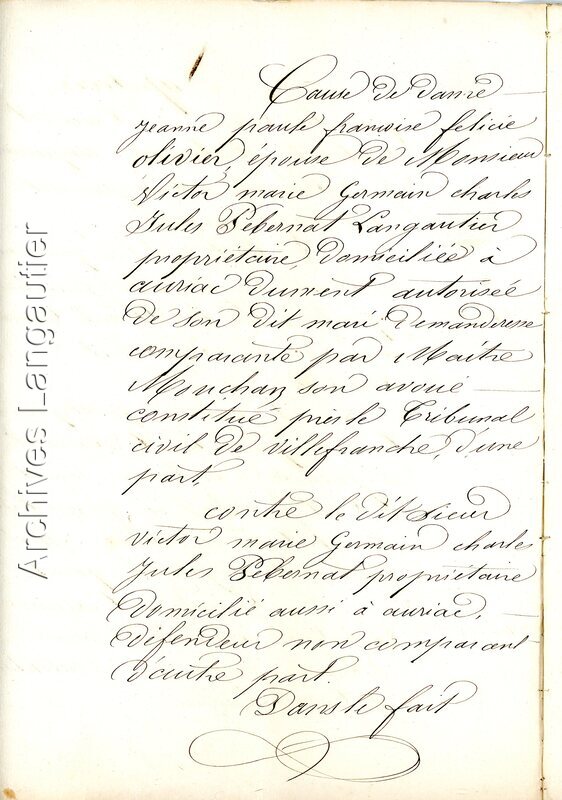 Cause de dame
Jeanne paule francoise felicie
olivier, épouse de Monsieur
Victor marie Germain charles
Jules Pebernat Langautier
propriétaire, domiciliée à
auriac dument autorisée
de son dit mari demanderesse
comparante par Maitre
Mouchan son avoué
constitué près le Tribunal
civil de villefranche, d'une
part,
contre le dit sieur
victor marie Germain charles
Jules Pebernat propriétaire
domicilié aussi à auriac,
défendeur non comparant
d'autre part.
Dans le fait
Archives Langautier